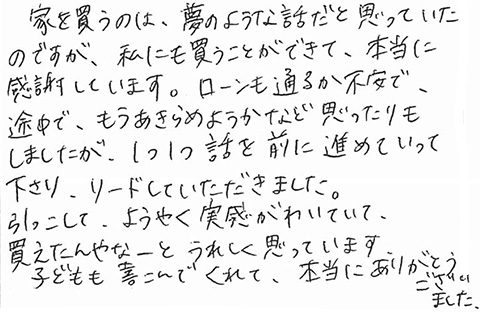 家を買うのは、夢のような話だと思っていた
のですが、私にも買うことができて、本当に
感謝しています。ローンも通るか不安で、
途中で、もうあきらめようかなど思ったりも
しましたが、1つ1つ話を前に進めていって
下さり、リードしていただきました。
引っこして、ようやく実感がわいていて、
買えたんやなーとうれしく思っています。
子どもも喜こんでくれて、本当にありがとう
ござい
ました。